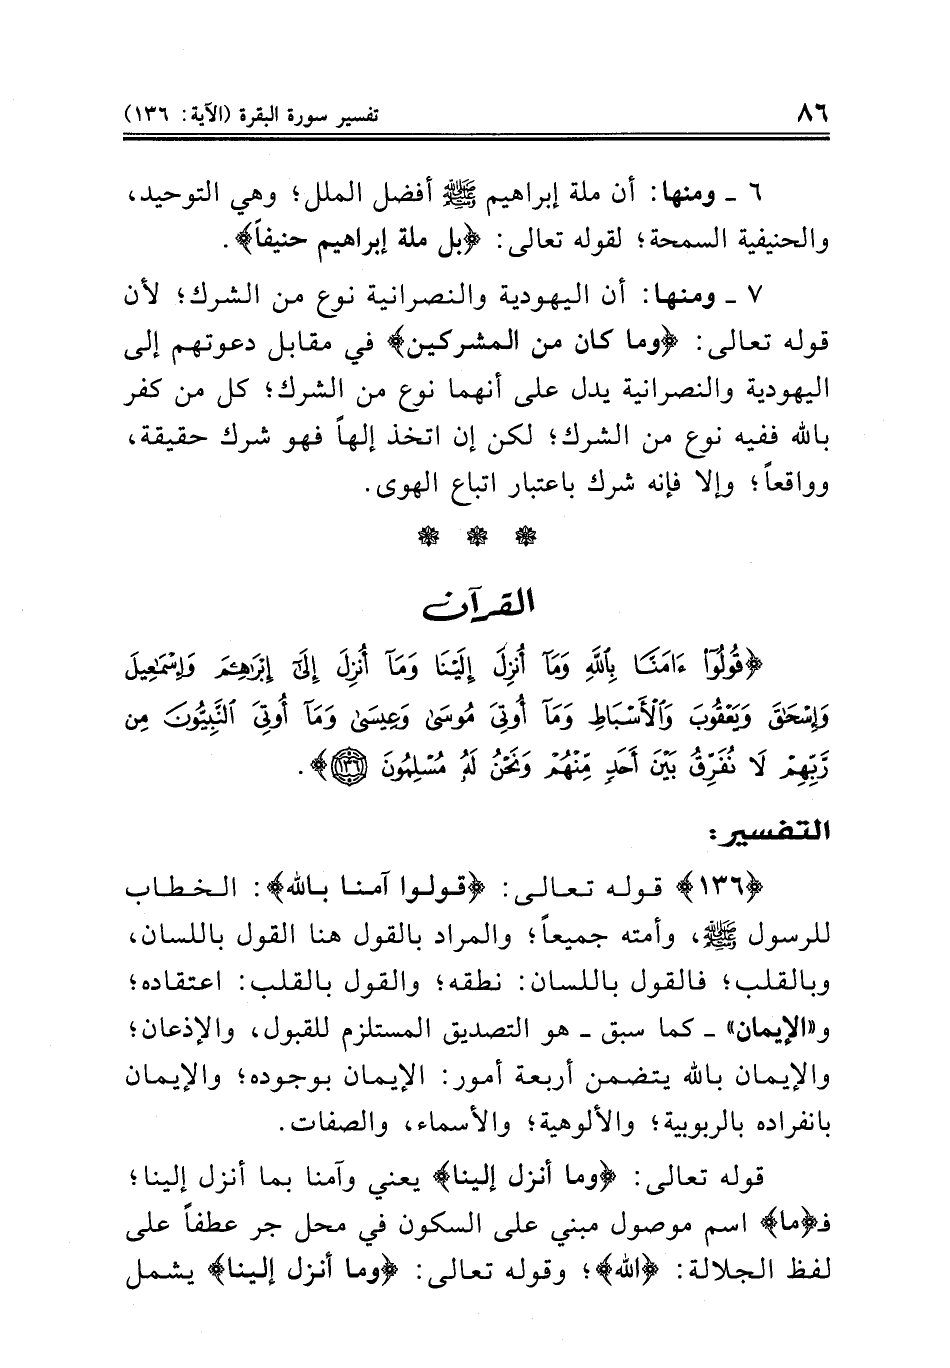 ٨٦ تفسير سورة البقرة (الآية: ١٣٦)
٦ ـ ومنها: أن ملة إبراهيم ﷺ أفضل الملل؛ وهي التوحيد،
والحنيفية السمحة؛ لقوله تعالى: ﴿بل ملة إبراهيم حنيفاً﴾.
٧ ـ ومنها: أن اليهودية والنصرانية نوع من الشرك؛ لأن
قوله تعالى: ﴿وما كان من المشركين﴾ في مقابل دعوتهم إلى
اليهودية والنصرانية يدل على أنهما نوع من الشرك؛ كل من كفر
بالله ففيه نوع من الشرك؛ لكن إن اتخذ إلهاً فهو شرك حقيقة،
وواقعاً؛ وإلا فإنه شرك باعتبار اتباع الهوى.
* * *
القرآن
﴿قُولُوٓا۟ ءَامَنَّا بِٱللَّهِ وَمَآ أُنزِلَ إِلَيْنَا وَمَآ أُنزِلَ إِلَىٰٓ إِبْرَٰهِـۧمَ وَإِسْمَـٰعِيلَ
وَإِسْحَـٰقَ وَيَعْقُوبَ وَٱلْأَسْبَاطِ وَمَآ أُوتِىَ مُوسَىٰ وَعِيسَىٰ وَمَآ أُوتِىَ ٱلنَّبِيُّونَ مِن
رَّبِّهِمْ لَا نُفَرِّقُ بَيْنَ أَحَدٍ مِّنْهُمْ وَنَحْنُ لَهُۥ مُسْلِمُونَ ١٣٦﴾.
التفسير:
﴿١٣٦﴾ قوله تعالى: ﴿قولوا آمنا بالله﴾: الخطاب
للرسول ﷺ، وأمته جميعاً؛ والمراد بالقول هنا القول باللسان،
وبالقلب؛ فالقول باللسان: نطقه؛ والقول بالقلب: اعتقاده؛
و«الإيمان» ـ كما سبق ـ هو التصديق المستلزم للقبول، والإذعان؛
والإيمان بالله يتضمن أربعة أمور: الإيمان بوجوده؛ والإيمان
بانفراده بالربوبية؛ والألوهية؛ والأسماء، والصفات.
قوله تعالى: ﴿وما أنزل إلينا﴾ يعني وآمنا بما أنزل إلينا؛
فـ﴿ما﴾ اسم موصول مبني على السكون في محل جر عطفاً على
لفظ الجلالة: ﴿الله﴾؛ وقوله تعالى: ﴿وما أنزل إلينا﴾ يشمل